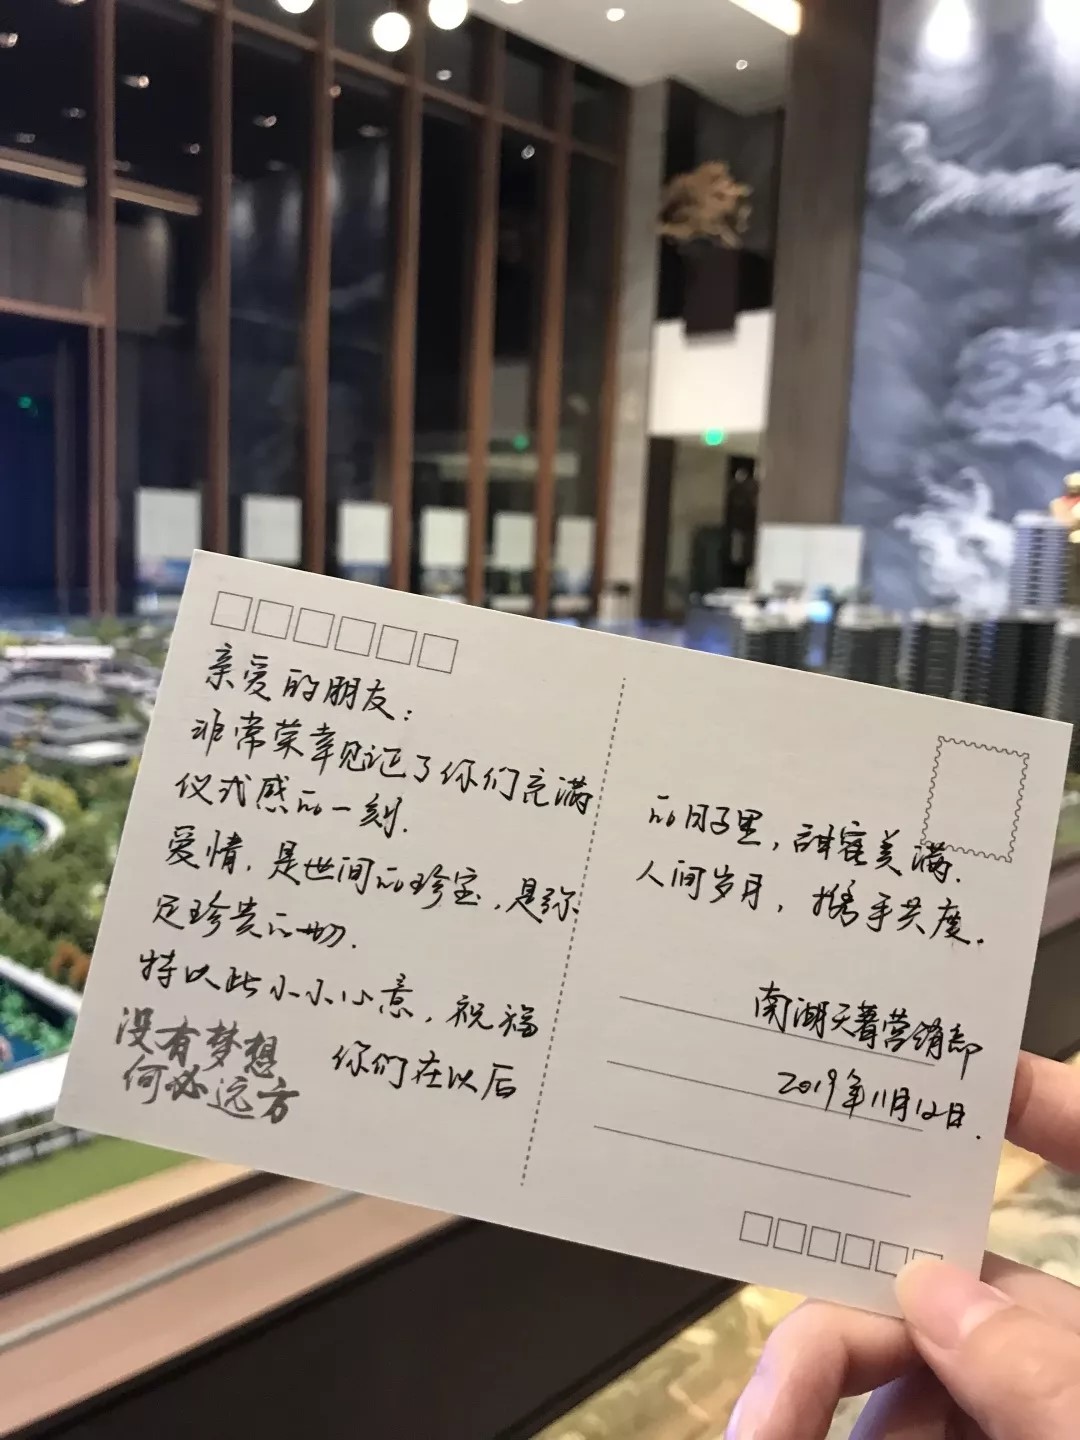 亲爱的朋友：
非常荣幸见证了你们充满
仪式感的一刻.
爱情，是世间的珍宝，是弥
足珍贵的一切.
特以此小小小意，祝福
你们在以后
没有梦想
何必远方
的日子里，甜蜜美满.
人间岁月，携手共度.
南湖天著营销部
2019年11月12日.